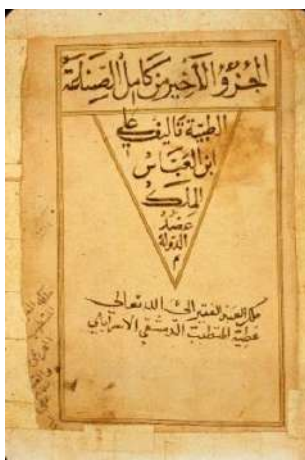 الجزؤ الأخير من كامل الصناعة
الطبية تأليف علي
ابن العباس
الملك
عضد
الدولة
م
ملك العبد الفقير الى الله تعالى
عطية المتطبب الدمشقي